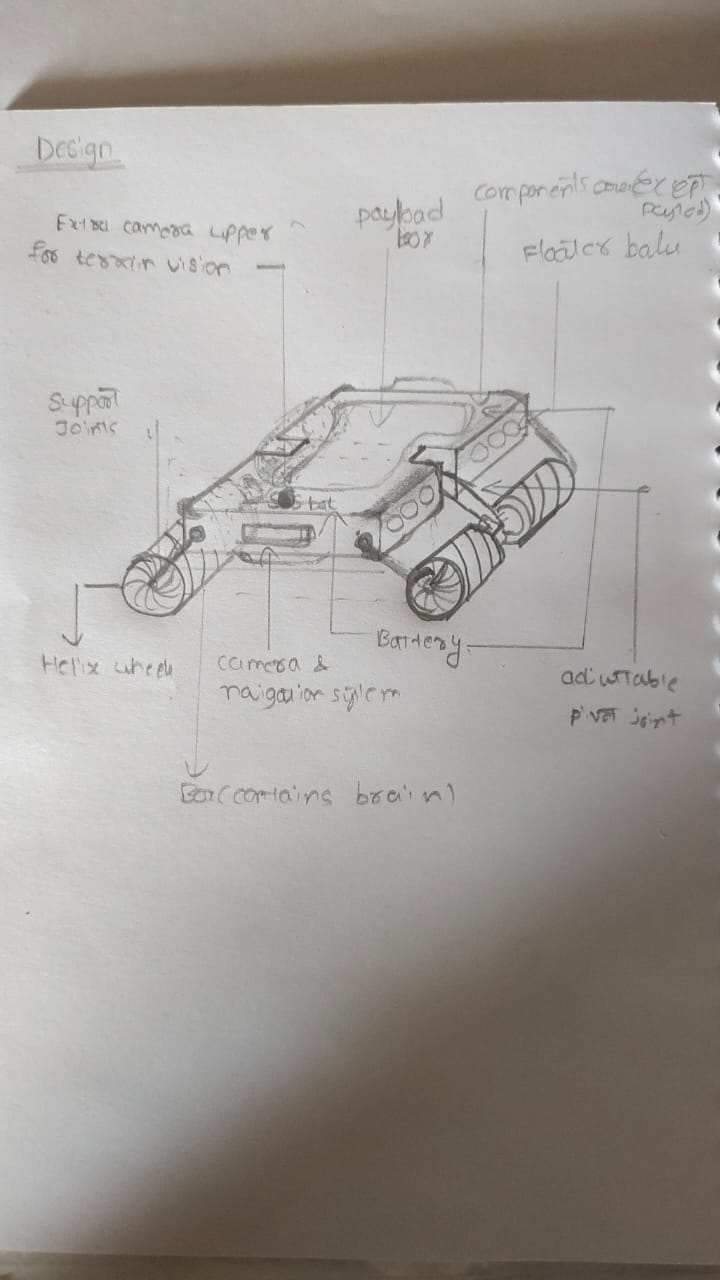 Design
Extra camera upper
for terrain vision
payload
box
components cover(Except
payload)
Floater
Support
Joints
Helix wheels
camera &
Battery
adjustable
pivot joint
Box(contains brain)